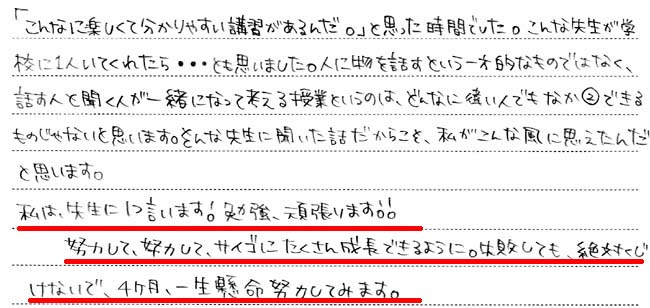 「こんなに楽しくて分かりやすい講習があるんだ。」と思った時間でした。こんな先生が学
校に1人いてくれたら・・・とも思いました。人に物を話すという一方的なものではなく、
話す人と聞く人が一緒になって考える授業というのは、どんなに偉い人でもなか②できる
ものじゃないと思います。そんな先生に聞いた話だからこそ、私がこんな風に思えたんだ
と思います。
私は、先生に1つ言います！勉強、頑張ります!!
努力して、努力して、サイゴにたくさん成長できるように。失敗しても、絶対くじ
けないで、4ヶ月、一生懸命努力してみます。